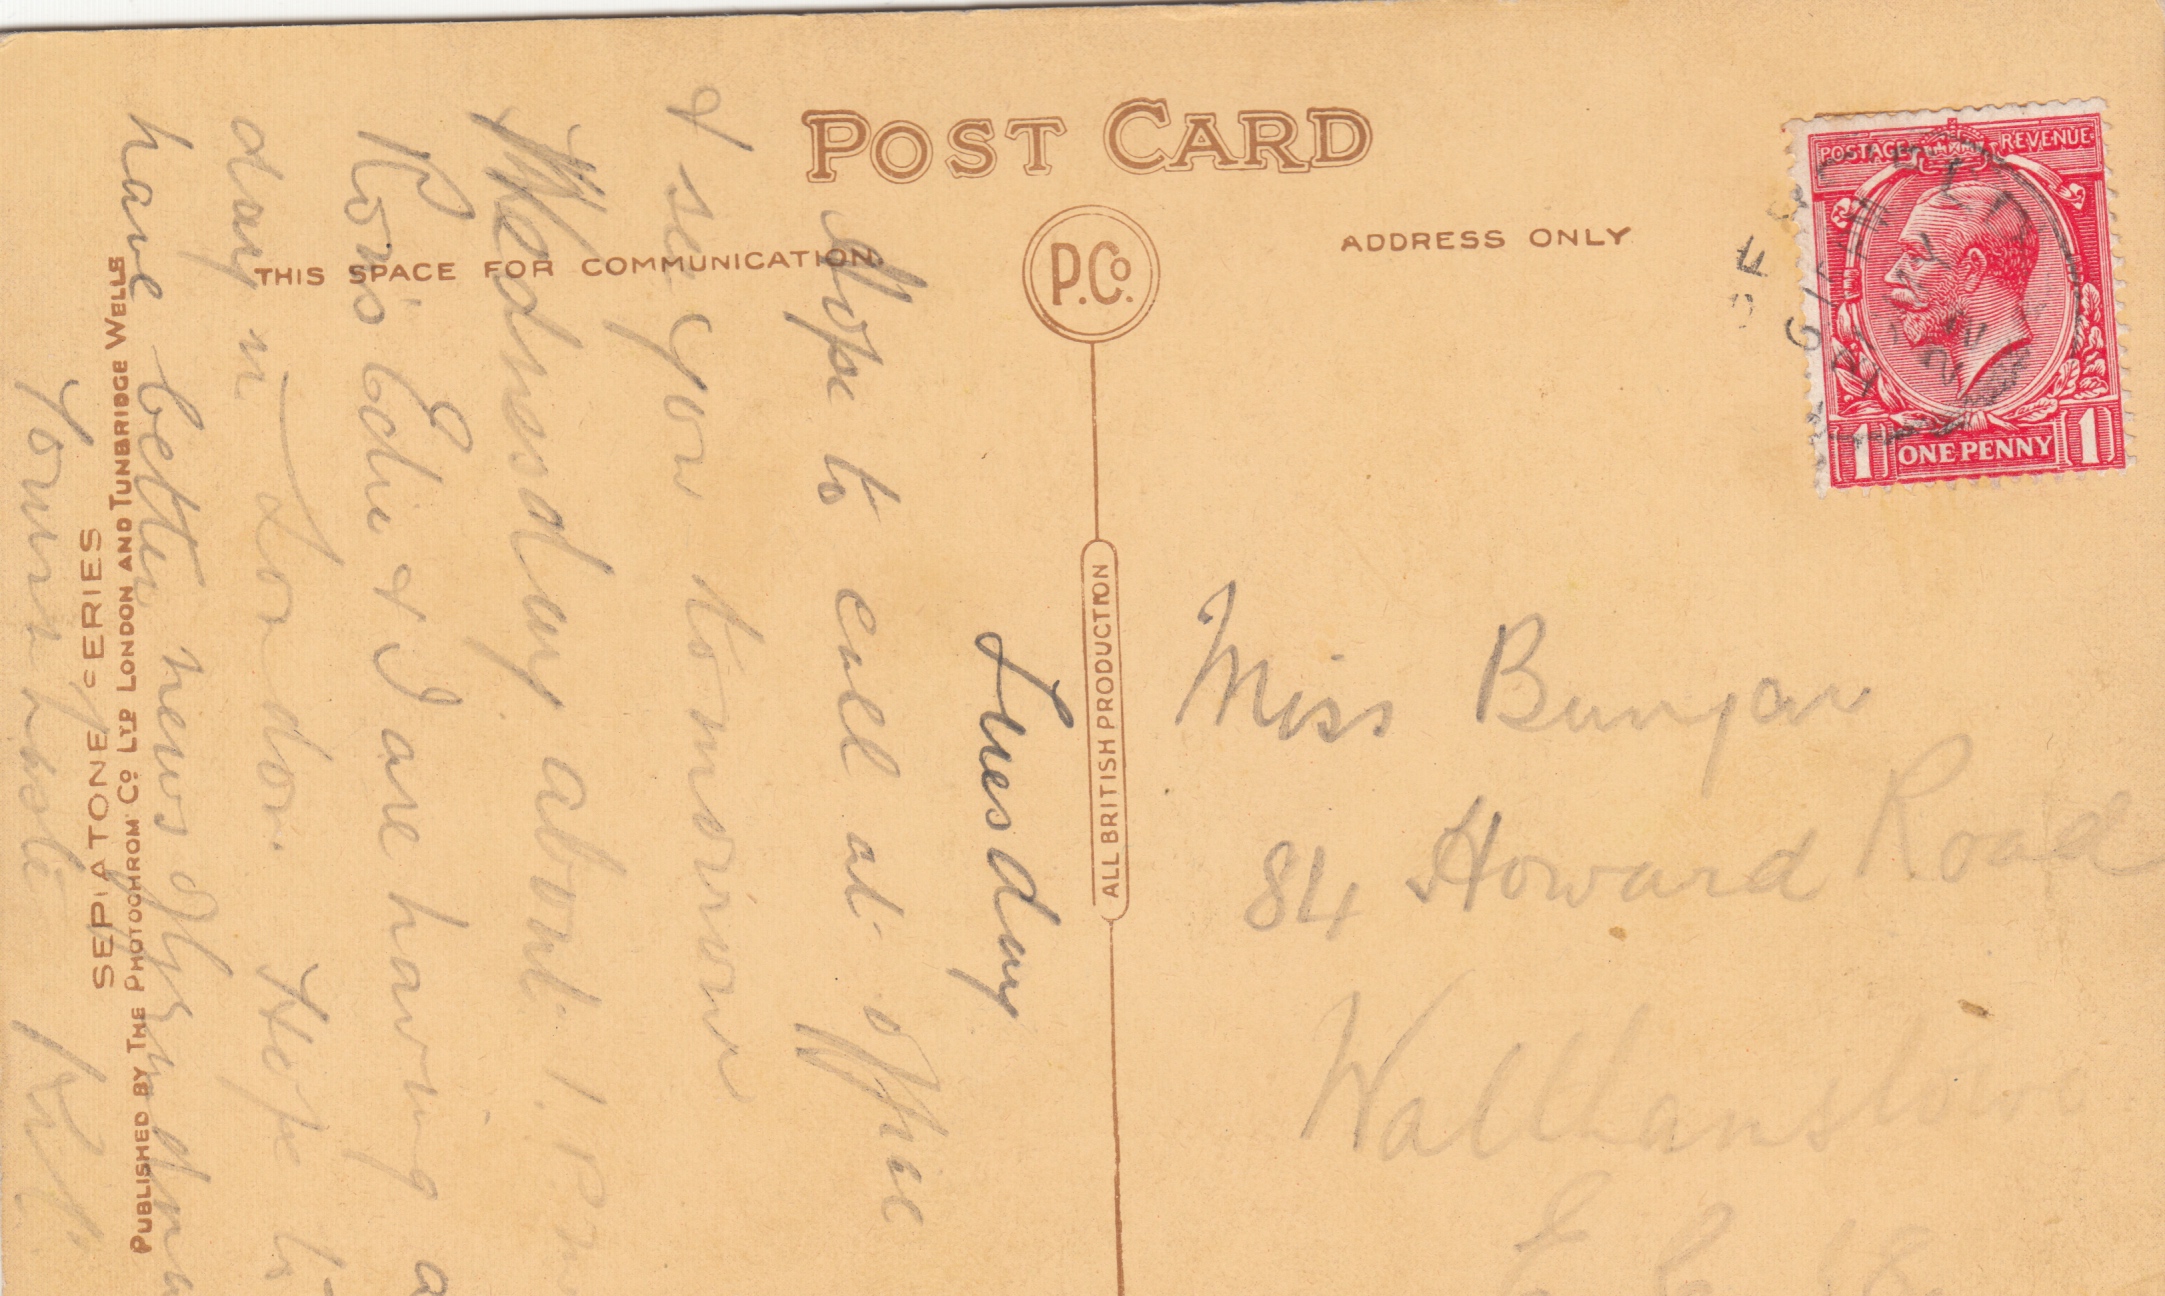 POST CARD
THIS SPACE FOR COMMUNICATION
ADDRESS ONLY
P.Co.
ALL BRITISH PRODUCTION
SEPIATONE SERIES
PUBLISHED BY THE PHOTOCHROM Co LTD LONDON AND TUNBRIDGE WELLS
POSTAGE REVENUE
1 ONE PENNY 1
Tuesday
Hope to call at office
& see you tomorrow
Wednesday about 1. P.m
Edie & I are having a
day in London. Hope to
have better news of
Yours
Miss Bunyan
84 Howard Road
Walthamstow
E